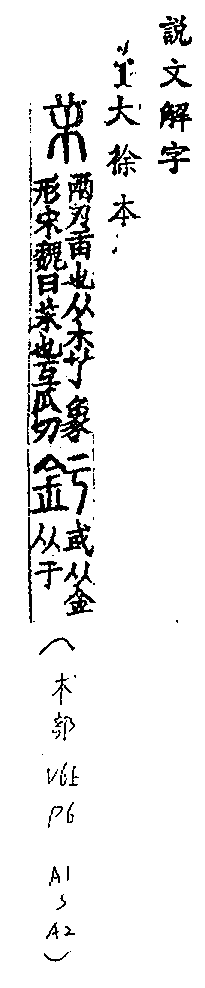 說文解字
大徐本
兩刃臿也从木丫象
形宋魏曰茉也互瓜切
釫
或从金
从于
(木部 V6上 P6 A1、A2)